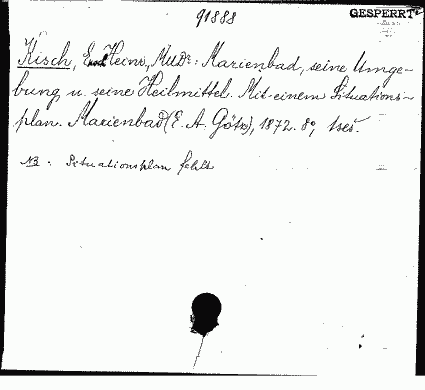 91888
GESPERRT
Kisch, E Heinr, MUDr: Marienbad, seine Umge-
bung u. seine Heilmittel. Mit einem Situations-
plan. Marienbad (E. A. Götz), 1872. 8°, 1 seš.
NB: Situationsplan fehlt